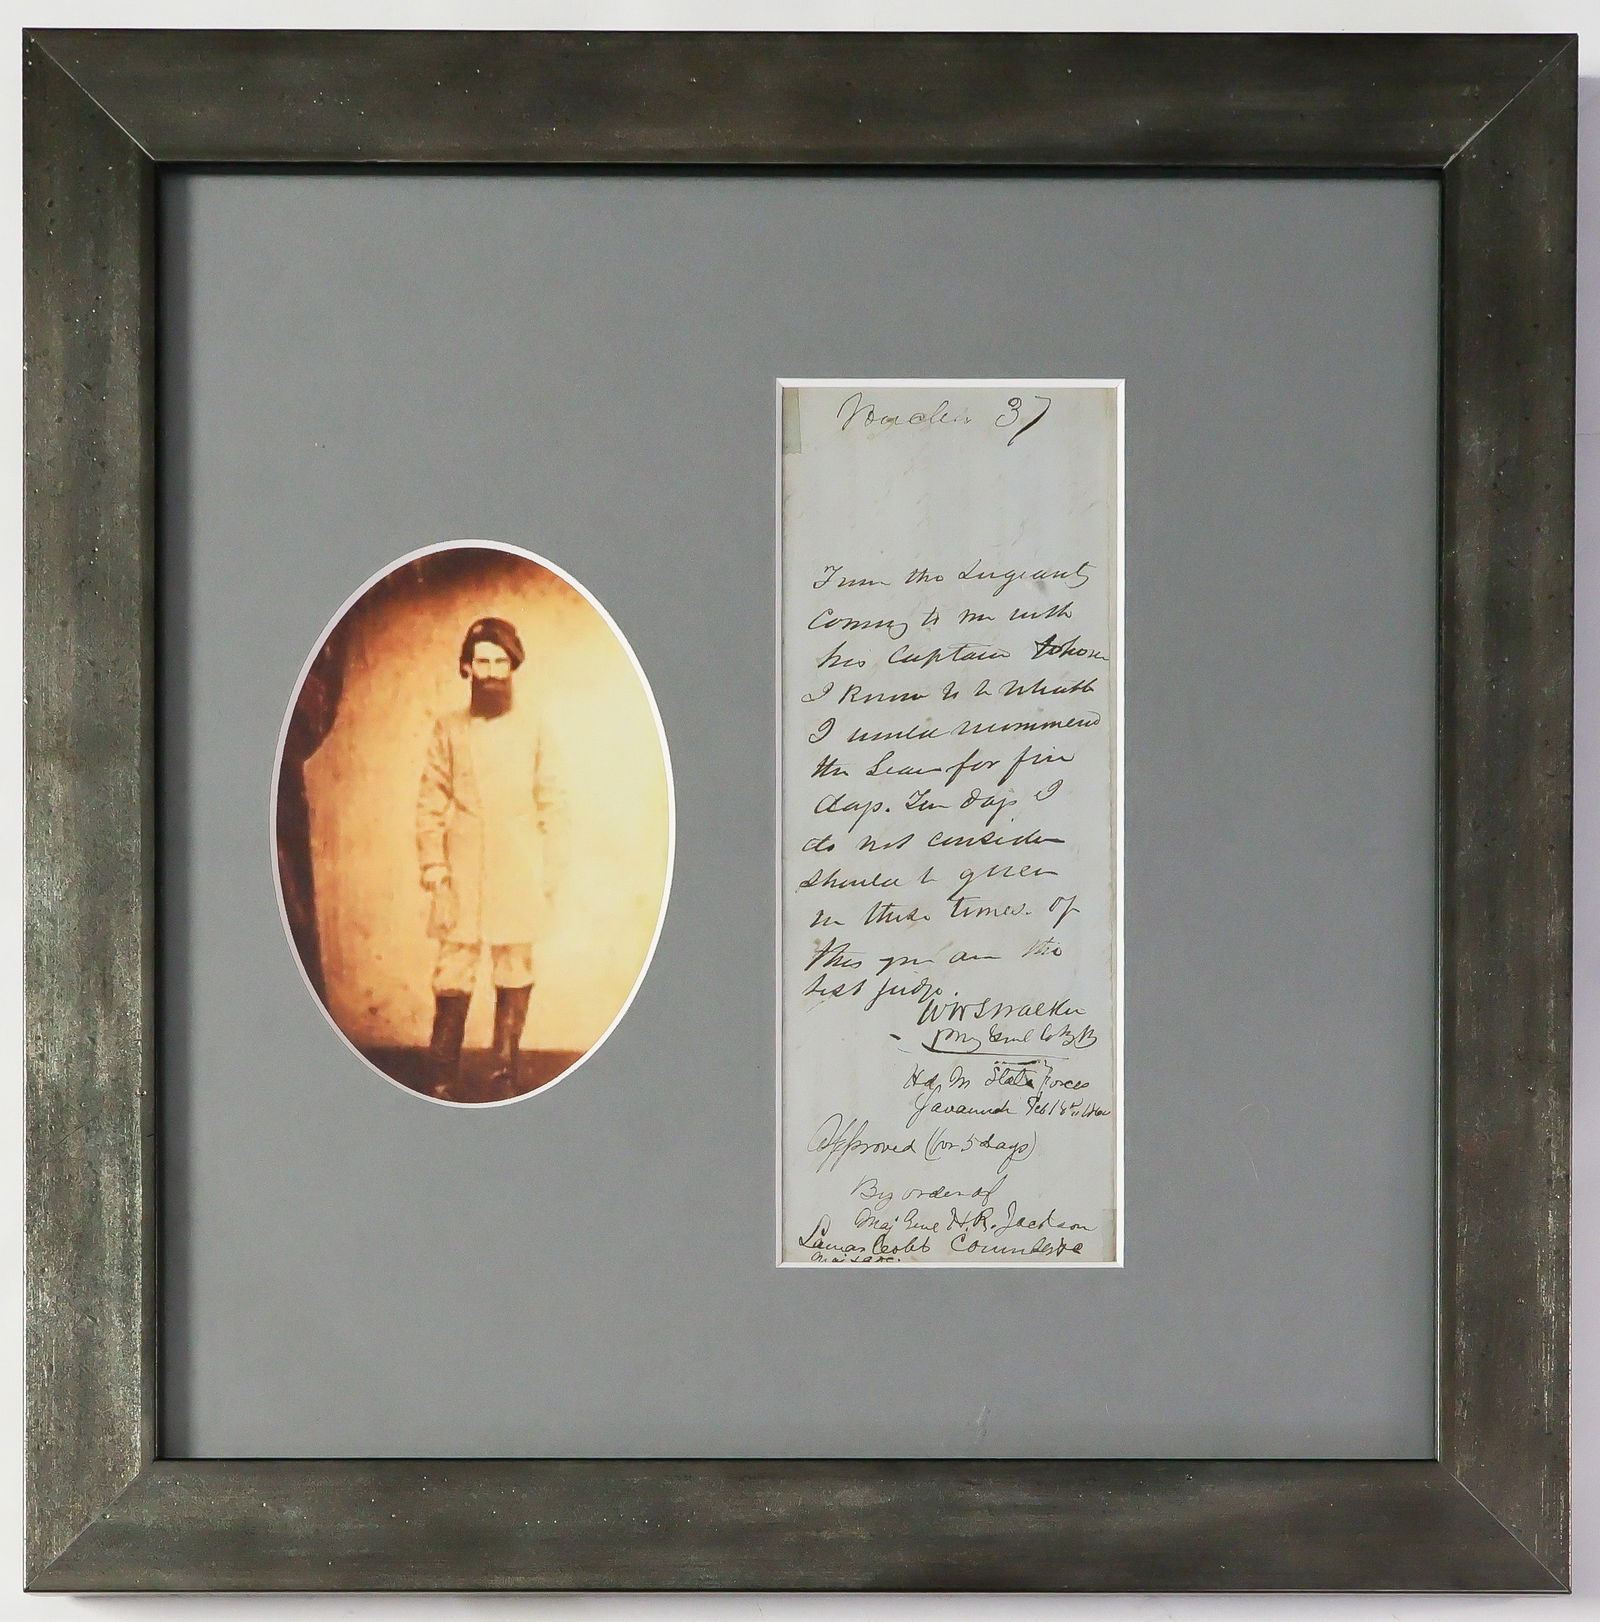 37
From the Surgeants
Coming to me with
his Captain whom
I know to be
I would recommend
the leave for five
days. Ten days I
do not consider
should be given
in these times. Of
this you are the
best judge.
W W S Walker
Hd Qr State Forces
Savannah Feb 18th
Approved (for 5 days)
By order of
Maj Genl H. R. Jackson
Lamar Cobb Commd'g
Maj & ADC.